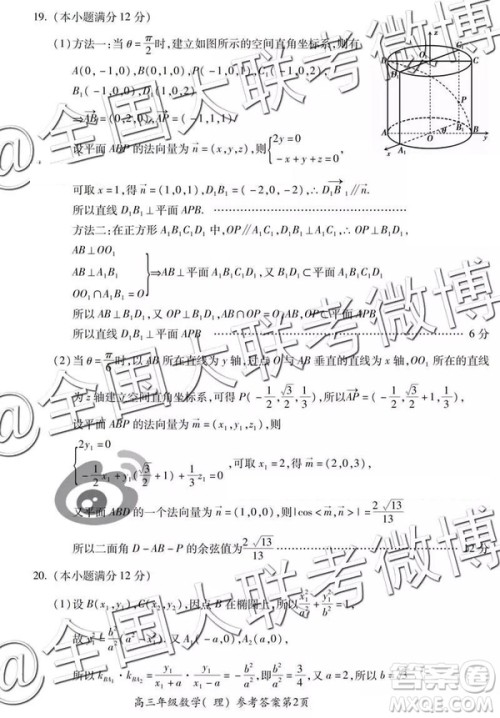 19.(本小题满分12分)
(1)方法一:当θ=π/2时,建立如图所示的空间直角坐标系,则有
A(0,-1,0),B(0,1,0),P(-1,0,1),
B₁(-1,0,0),D₁(1,0,2)
⇒AB=(0,2,0),AP=(-1,1,1)
设平面APB的法向量为n=(x,y,z),则{2y=0
-x+y+z=0
可取x=1,得n=(1,0,1),D₁B₁=(-2,0,-2),∴D₁B₁∥n.
所以直线D₁B₁⊥平面APB.
方法二:在正方形A₁B₁C₁D₁中,OP∥A₁D₁,OP∥A₁C₁,
AB⊥OO₁
AB⊥A₁B₁
OO₁∩A₁B₁=O
}⇒AB⊥平面A₁B₁C₁D₁,又B₁D₁⊂平面A₁B₁C₁D₁
所以AB⊥B₁D₁,又OP⊥B₁D₁,AB∩OP=O,
所以直线D₁B₁⊥平面APB
6分
(2)当θ=π/6时,以AB所在的直线为y轴,过点O与AB垂直的直线为x轴,OO₁所在的直线
为z轴建立空间直角坐标系,可得P(-1/2,√3/2,1/√3),所以AP=(-1/2,√3/2+1,1/√3),
设平面ABP的法向量为m=(x₁,y₁,z₁),
{2y₁=0
-1/2x₁+y₁(√3/2+1)+1/√3z₁=0
,可取x₁=2,得m=(2,0,√3),
又平面ABD的一个法向量为n=(1,0,0),所以|cos<m,n>|=2√13/13
所以二面角D-AB-P的余弦值为2√13/13
12分
20.(本小题满分12分)
(1)设B(x₁,y₁),C(x₂,y₂),因点B在椭圆上,所以x₁²/a²+y₁²/b²=1,
故y₁²=b²/a²(a²-x₁²).又A₁(-a,0),A₂(a,0),
所以k_BA₁·k_BA₂=y₁/(x₁+a)·y₁/(x₁-a)=-b²/a²,即b²/a²=3/4,又a=2,
高三年级数学(理)参考答案第2页
@全国大联考微博
@全国大联考微博
@全国大联考微博
答案圈